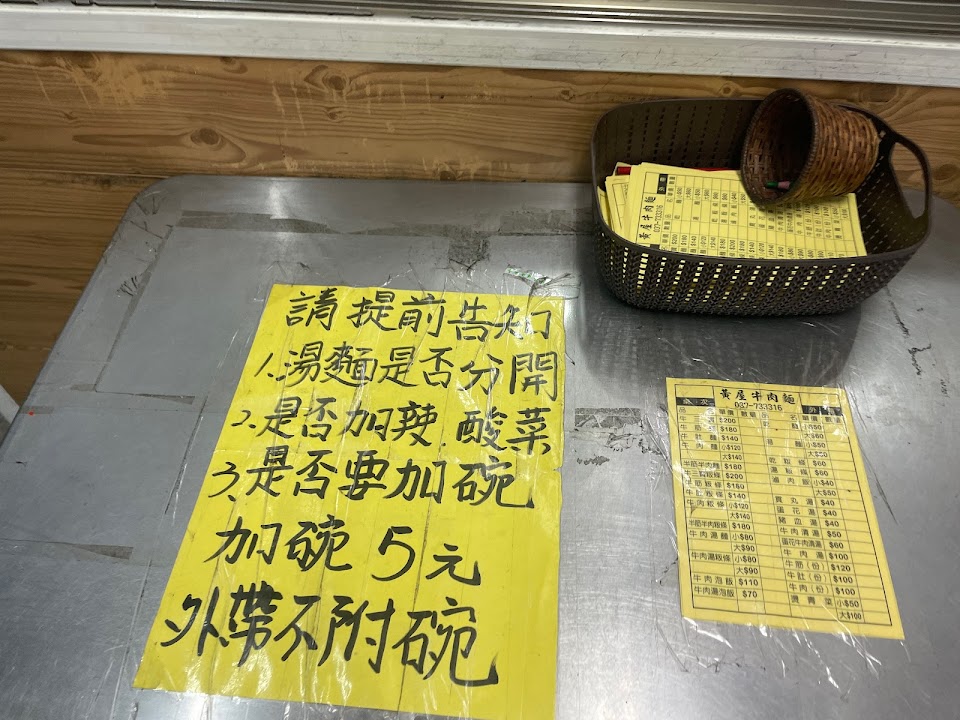 請提前告知
1.湯麵是否分開
2.是否加辣.酸菜
3.是否要加碗
加碗 5元
外帶不附碗
黃屋牛肉麵
037-733316
黃屋牛肉麵
037-733316
牛三寶麵 $200
牛筋麵 $180
牛肚麵 $140
牛肉麵 小$120
大$140
半筋半牛肉麵 $180
牛三寶粄條 $200
牛筋粄條 $180
牛肚粄條 $140
牛肉粄條 小$120
大$140
半筋半牛肉粄條 $180
牛肉湯麵 小$80
大$90
牛肉湯粄條 小$80
大$90
牛肉泡飯 $110
牛肉湯泡飯 $70
乾麵 小$50
大$60
湯麵 小$50
大$60
乾粄條 $60
湯粄條 $60
滷肉飯 小$40
大$50
貢丸湯 $40
蛋花湯 $40
豬血湯 $40
牛肉清湯 $50
蛋花牛肉清湯 $60
牛肉湯 $100
牛筋(份) $120
牛肚(份) $100
牛肉(份) $100
燙青菜 小$50
大$100